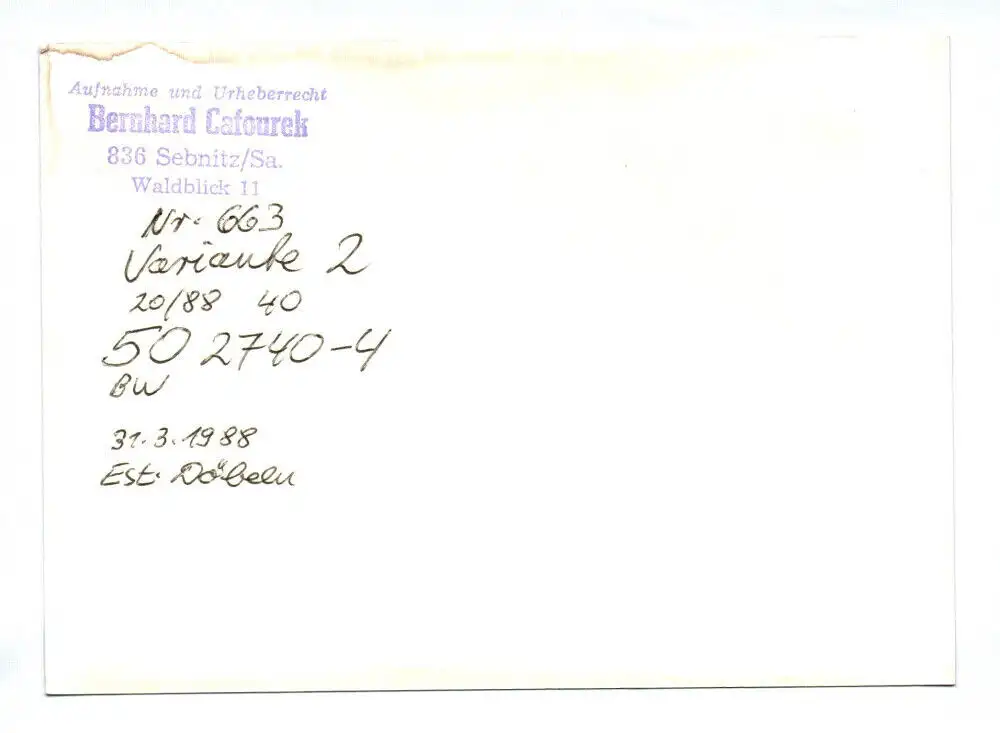 Aufnahme und Urheberrecht
Bernhard Cafourek
836 Sebnitz/Sa.
Waldblick 11
Nr. 663
Variante 2
20/88 40
50 2740-4
BW
31.3.1988
Est. Döbeln